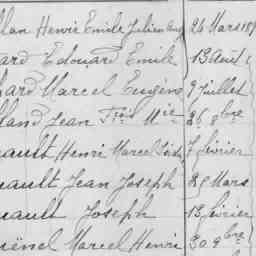 llan Henri Emile Julien Aug 26 Mars 189
ard Edouard Emile 13 Août
hard Marcel Eugène 9 Juillet
lland Jean Fçois Mie 26 8bre
ault Henri Marcel 7 février
ault Jean Joseph 28 Mars
uault Joseph 13 février
uënel Marcel Henri 30 9bre